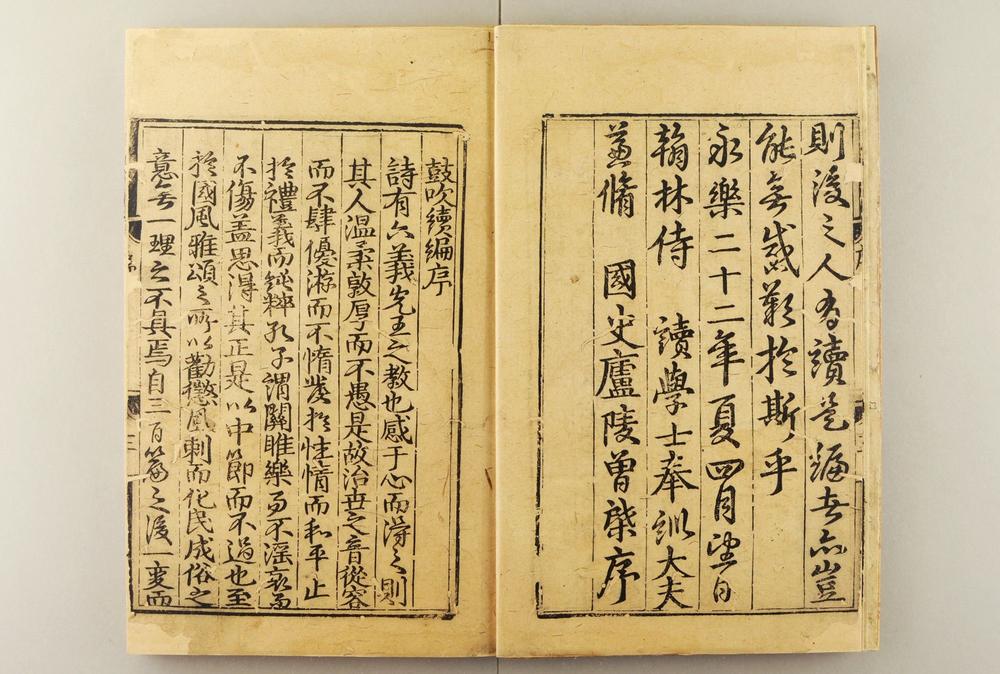 則後之人有讀是編者亦豈
能無感歎於斯乎
永樂二十二年夏四月望日
翰林侍 讀學士奉訓大夫
兼脩 國史廬陵曾棨序
鼓吹續編序
詩有六義先王之教也感于心而得之則
其人温柔敦厚而不愚是故治世之音從容
而不肆優游而不惰發於性情而和平止
於禮義而純粹孔子謂關雎樂而不淫哀而
不傷盖思得其正是以中節而不過也至
於國風雅頌之所以勸懲風刺而化民成俗之
意無一理之不具焉自三百篇之後一變而